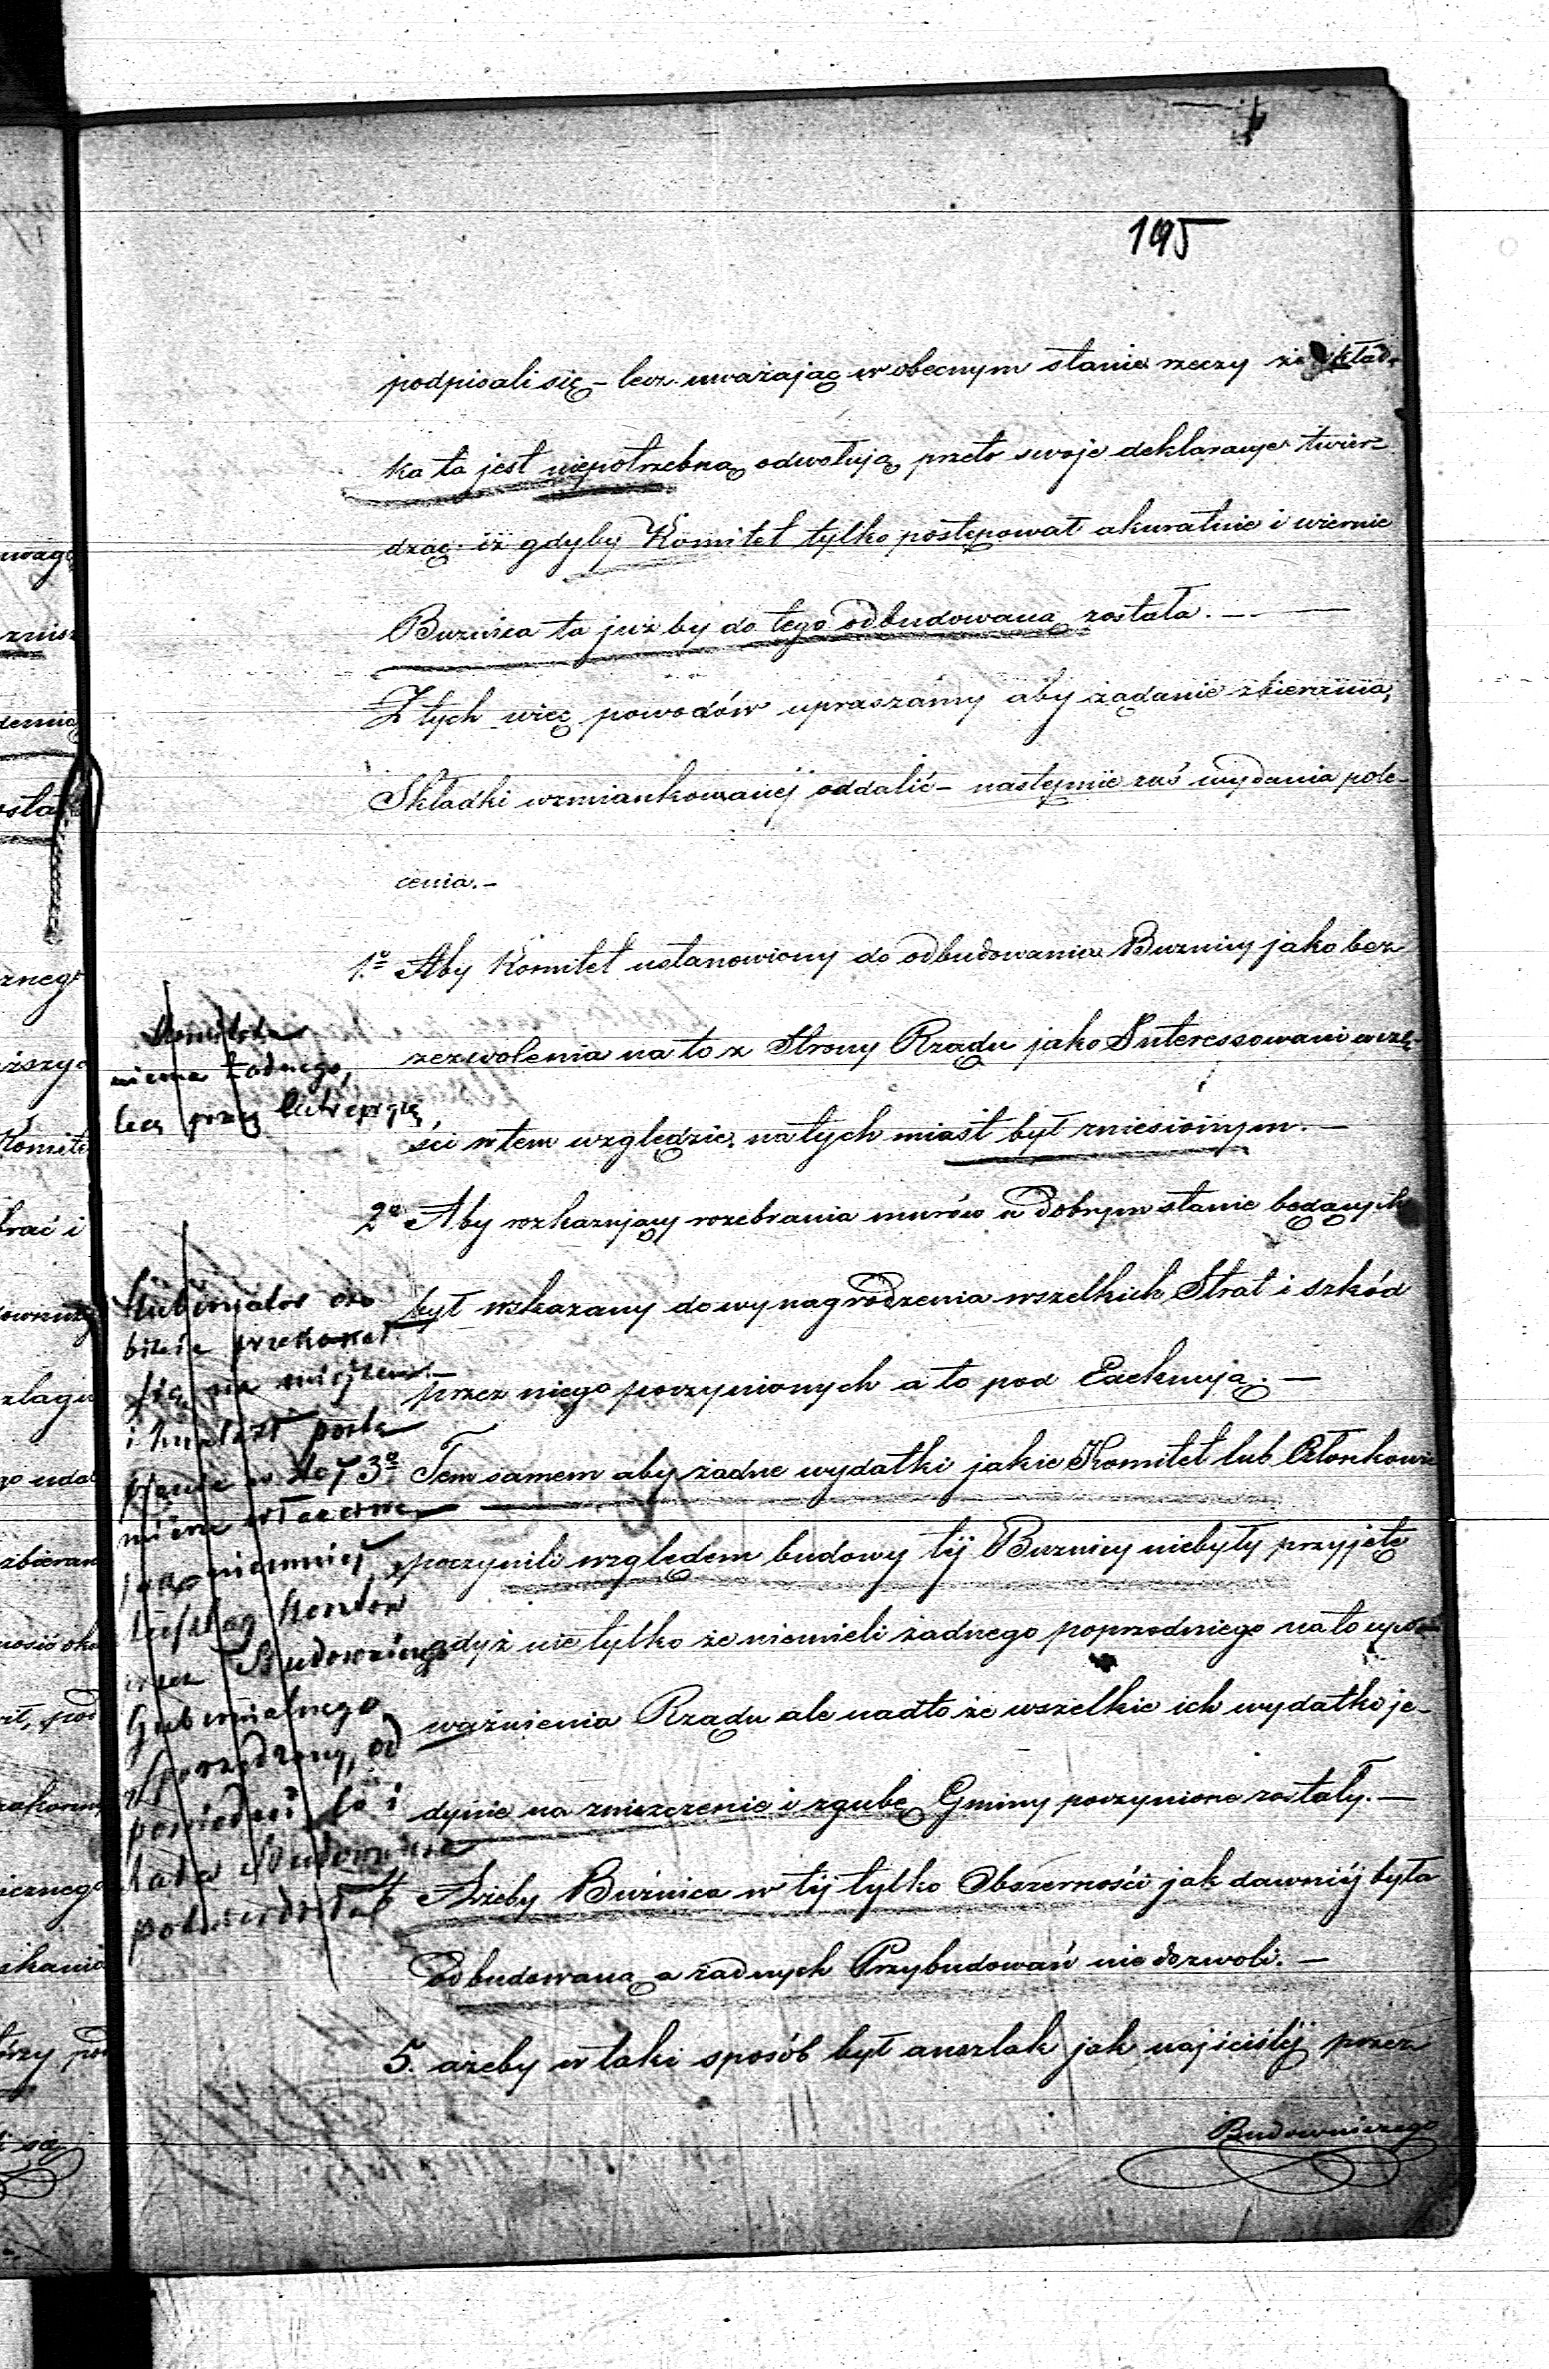 195
podpisali się – lecz uważając w obecnym stanie rzeczy że skład-
ka ta jest niepotrzebną odwołują przeto swoje deklaracye twier-
dząc iż gdyby Komitet tylko postępował akuratnie i wiernie
Buznica ta już by do tego odbudowaną została. —
Z tych więc powodów upraszamy aby żądanie zbierania
Składki wzmiankowanéj oddalić – następnie zaś wydania pole-
cenia. –
1o Aby Komitet ustanowiony do odbudowania Buznicy jako bez
zezwolenia na to z Strony Rządu jako Interessowani w czę-
ści w tem względzie, natych miast był zniesionym. —
2o Aby rozkazujący rozebrania murów w dobrym stanie będących
był wskazany do wynagrodzenia wszelkich Strat i szkód
przez niego poczynionych a to pod Exekucyją. —
3o Tem samem aby żadne wydatki jakie Komitet lub Członkowie
poczynili względem budowy téj Buznicy niebyły przyjęte
gdyż nie tylko że niemieli żadnego poprzedniego na to upo-
ważnienia Rządu ale nadto że wszelkie ich wydatki je-
dynie na zniszczenie i zgubę Gminy poczynione zostały. —
4 Ażeby Buźnica w téj tylko Obszerności jak dawniéj była
odbudowaną a żadnych Przybudowań nie dozwoli. —
5. ażeby w taki sposób był anszlak jak najściśléj przez
Budowniczego
Komitetu
niema żadnego,
lecz przy
Gubernator oso
biście przekonał
się na miejscu
i znalazł postę
powanie
Budowniczego
Gubernialnego
sporządzony, od